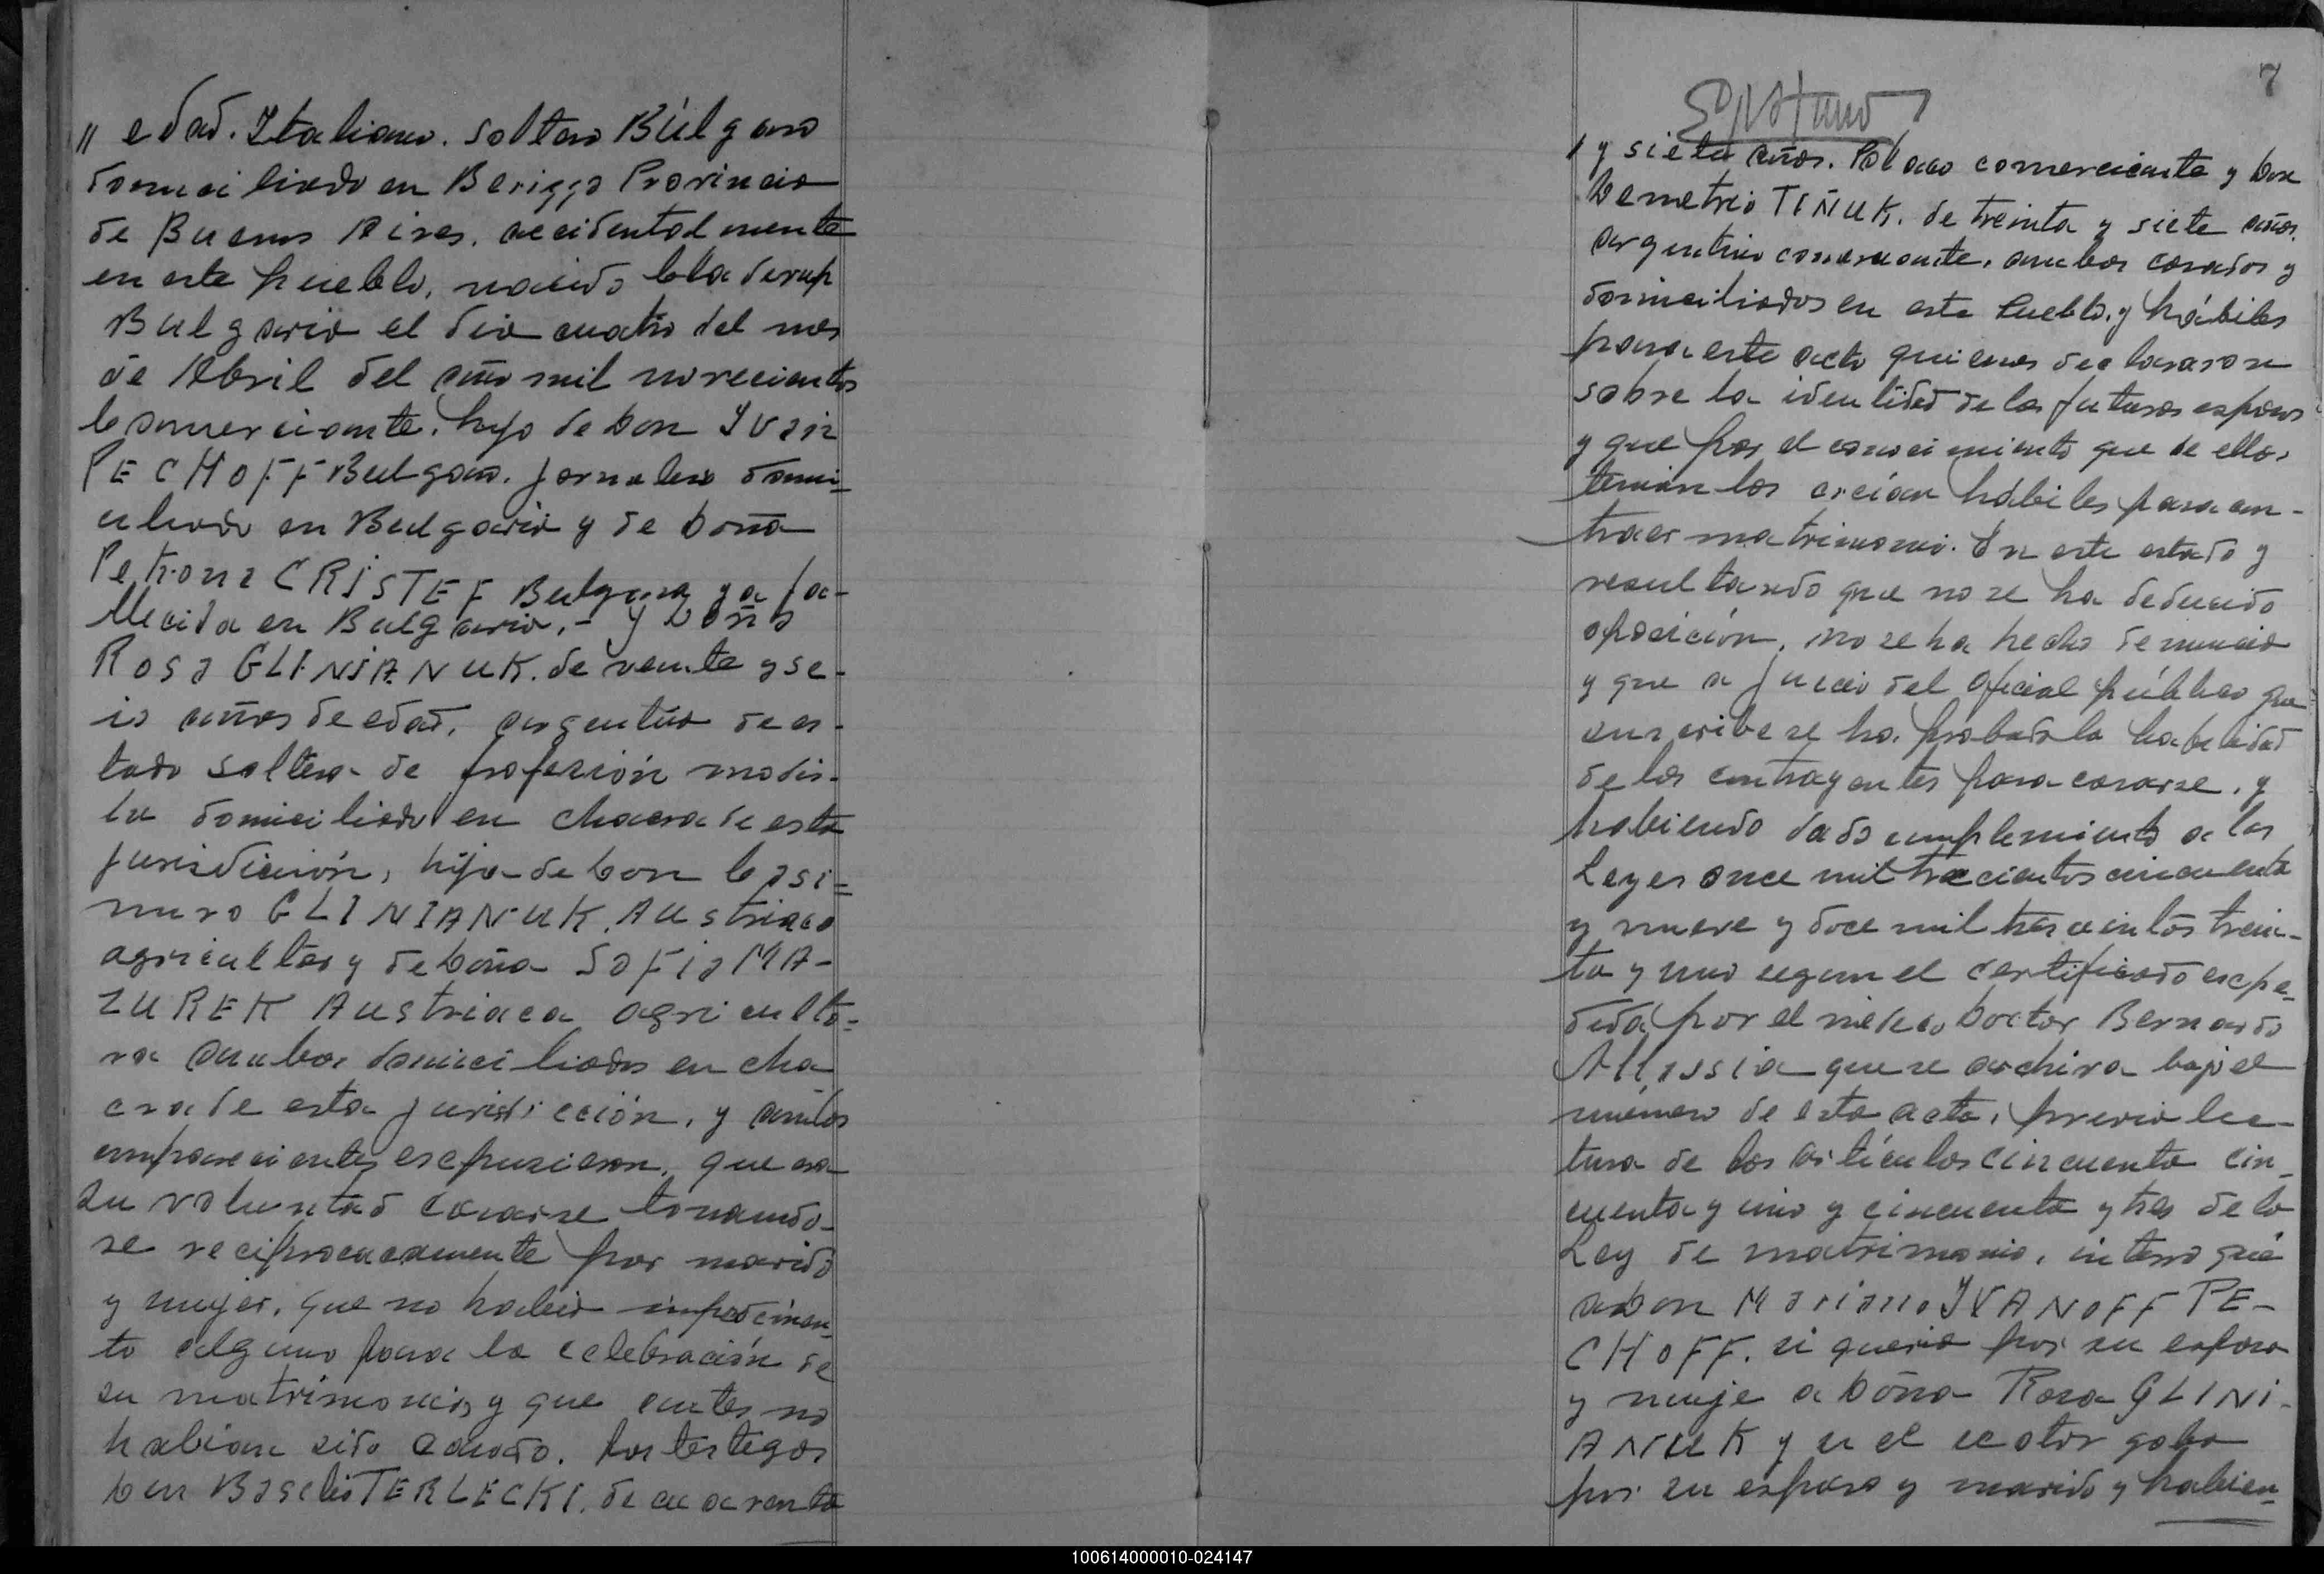 " edad. Italiano. soltero Búlgaro
domiciliado en Berisso Provincia
de Buenos Aires, accidentalmente
en este pueblo, nacido
Bulgaria el dia cuatro del mes
de Abril del año mil novecientos
Comerciante. hijo de Don Ivan
PECHOFF Bulgaro. jornalero domi-
ciliado en Bulgaria y de Doña
Petrona CRISTEF Bulgara ya fa-
llecida en Bulgaria.- y Doña
Rosa GLINIANUK. de veinte y se-
is años de edad, argentina de es-
tado soltera de profesión modis-
ta domiciliada en chacra de esta
jurisdicion, hija de Don Casi=
miro GLINIANUK. Austriaco
agricultor y de Doña Sofia MA-
ZUREK Austriaca agriculto=
ra ambos domiciliados en cha
cra de esta jurisdicción, y ambos
comparecientes escpusieron, que era
su voluntad casarse tomando-
se reciprocacamente por marido
y mujer, que no habia impedimen-
to alguno para la celebración de
su matrimonio, y que antes no
habian sido casado. Por testigos
Don Baselio TERLECKI. de cuarenta
7
y siete años. Polaco comerciante y Don
Demetrio TEÑUK. de treinta y siete años.
argentino comerciante, ambos casados y
domiciliados en este Pueblo, y hábiles
para este acto quienes declararon
sobre la identidad de los futuros esposos
y que por el conocimiento que de ellos
tenian los creian hábiles para con-
traer matrimonio. En este estado y
resultando que no se ha deducido
oposición, no se ha hecho denuncia
y que a juicio del oficial público que
suscribe se ha probado la habilidad
de los contrayentes para casarse, y
habiendo dado cumplimiento a las
Leyes once mil trecientos cincuenta
y nueve y doce mil trescientos trein-
ta y uno segun el certificado escpe-
dida por el médico Doctor Bernardo
Allassia que se archiva bajo el
número de esta acta, previa lec-
tura de los artículos cincuenta cin-
cuenta y uno y cincuenta y tres de la
Ley de matrimonio, interrogué
a Don Mariano IVANOFF PE-
CHOFF. si queria por su esposa
y muje a Doña Rosa GLINI-
ANUK y si el
por su esposo y marido y habien-
100614000010-024147